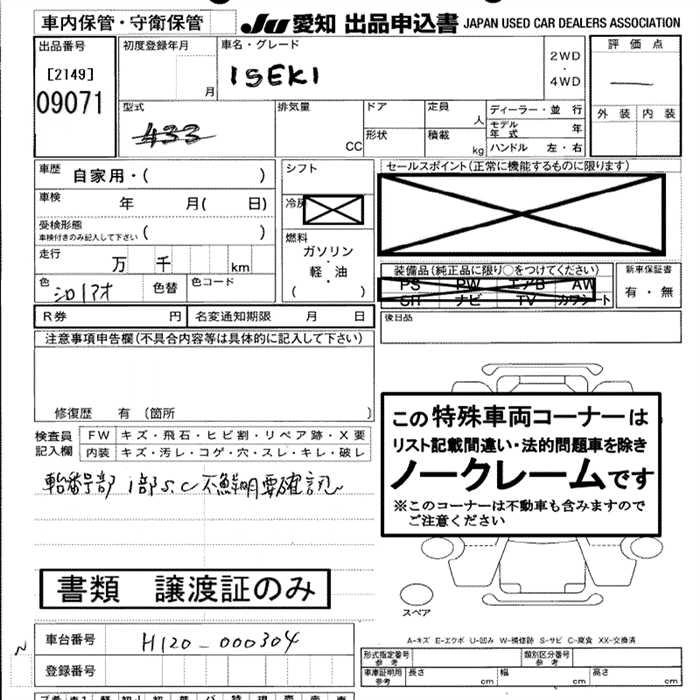 車内保管・守衛保管
Ju 愛知 出品申込書 JAPAN USED CAR DEALERS ASSOCIATION
出品番号
[2149]
09071
初度登録年月
月
車名・グレード
ISEKI
2WD
・
4WD
評価点
―
外装 内装
型式
433
排気量
CC
ドア
形状
定員
人
積載
kg
ディーラー・並行
モデル年式 年
ハンドル 左・右
車歴
自家用・( )
車検
年 月( 日)
受検形態
車検付きのみ記入して下さい ( )
走行
万 千 km
色
シロ/アオ
色替
色コード
シフト
冷房
燃料
ガソリン
・
軽・油
( )
セールスポイント(正常に機能するものに限ります)
装備品(純正品に限り○をつけてください)
PS PW エアB AW
SR ナビ TV カワシート
新車保証書
有・無
R券 円 名変通知期限 月 日
後日品
注意事項申告欄(不具合内容等は具体的に記入して下さい)
修復歴 有 (箇所 )
検査員記入欄
FW キズ・飛石・ヒビ割・リペア跡・X要
内装 キズ・汚レ・コゲ・穴・スレ・キレ・破レ
車台番号部 1部S.C 不鮮明要確認
この特殊車両コーナーは
リスト記載間違い・法的問題車を除き
ノークレームです
※このコーナーは不動車も含みますので
ご注意ください
書類 譲渡証のみ
スペア
A-キズ E-エクボ U-凹み W-補修跡 S-サビ C-腐食 XX-交換済
車台番号
H120-000304
登録番号
形式指定番号 参考
類別区分番号 参考
車庫証明用 参考
長さ cm 幅 cm 高さ cm